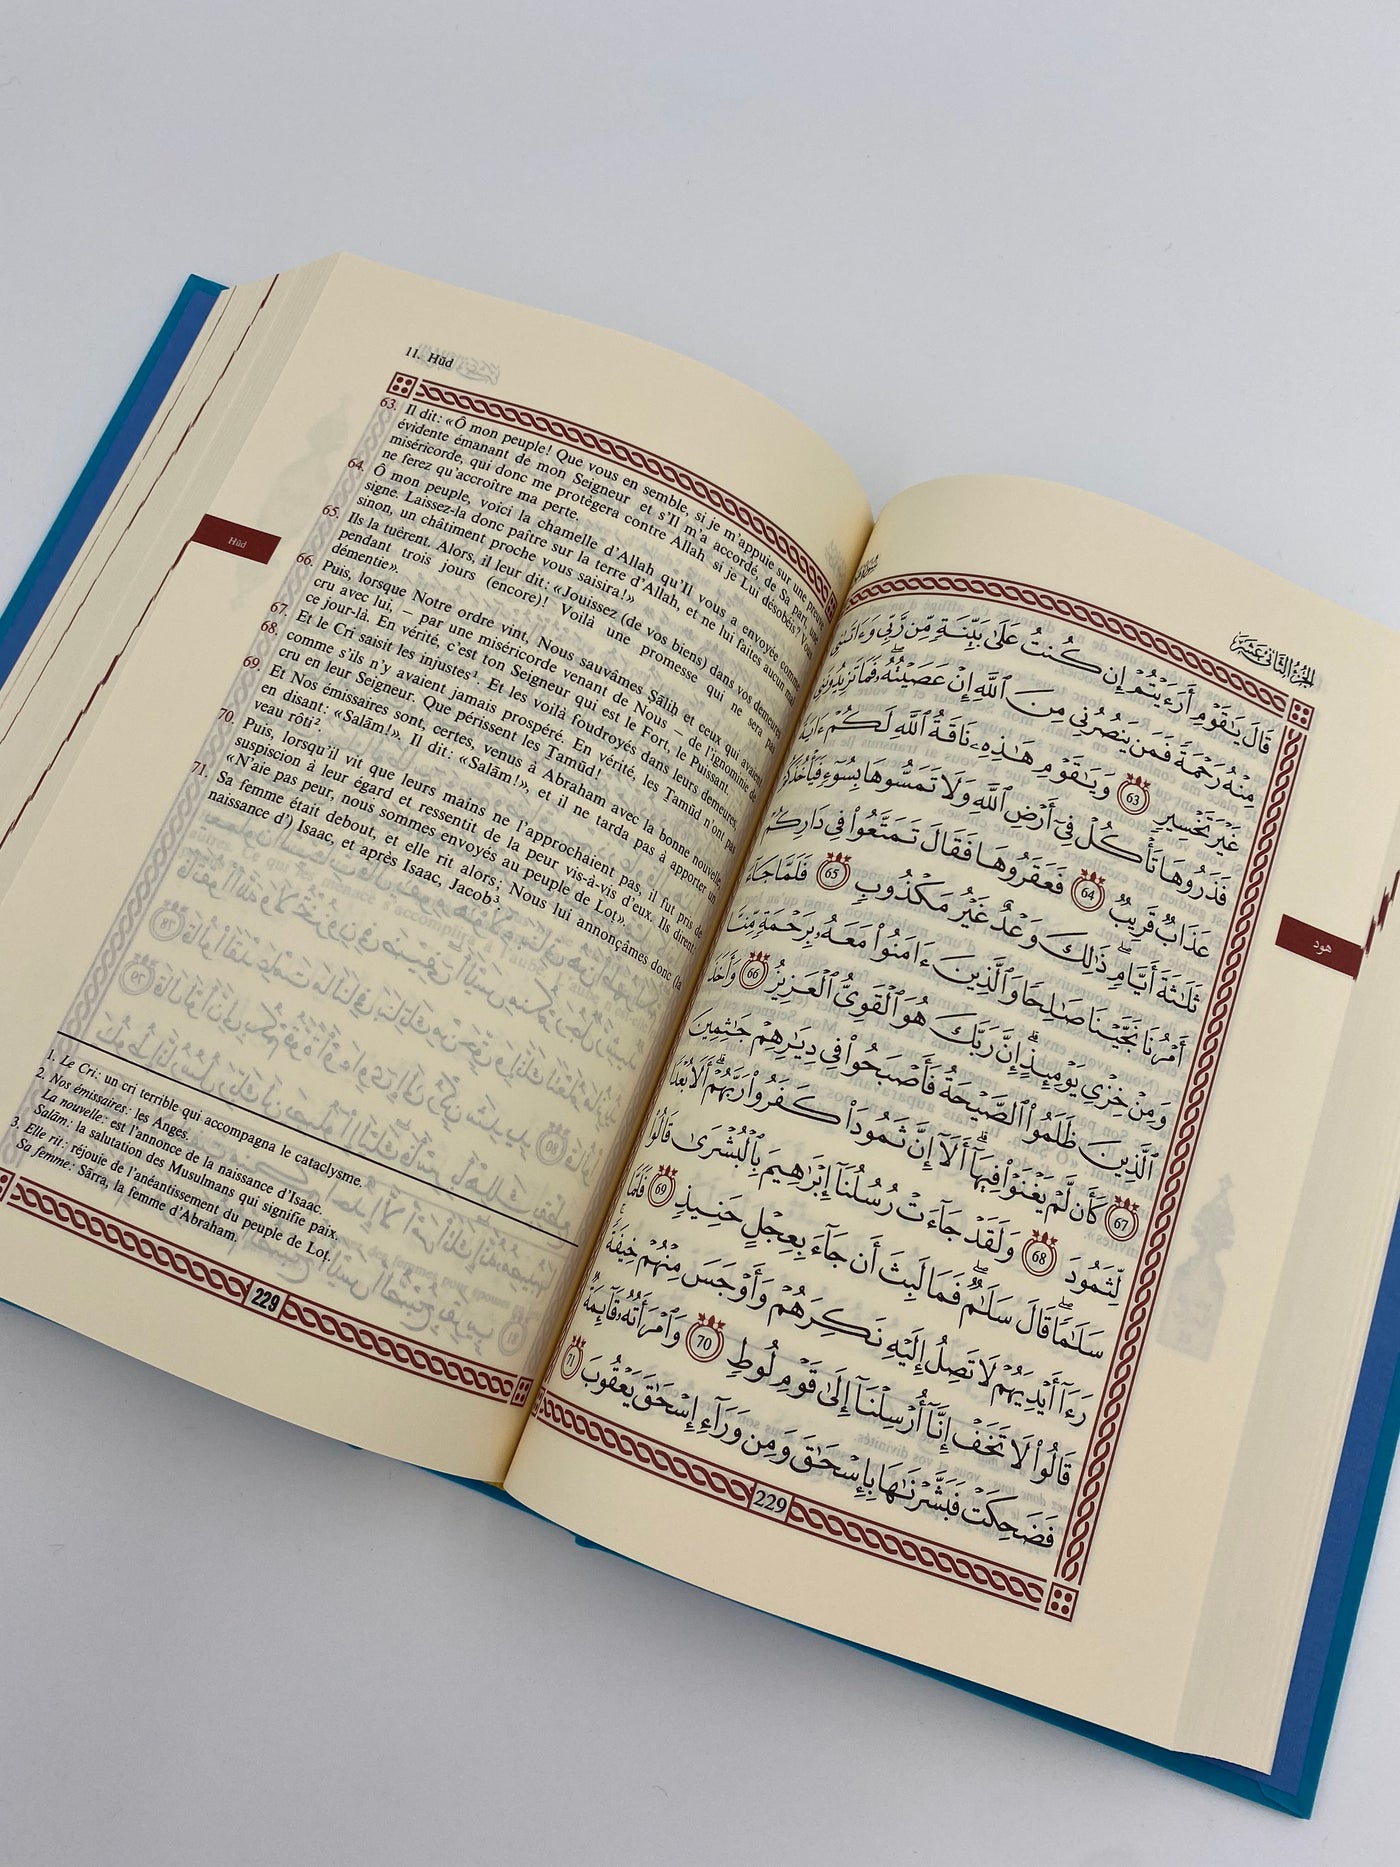 11. Hūd
63. Il dit: «Ô mon peuple! Que vous en semble, si je m'appuie sur une preuve
évidente émanant de mon Seigneur et s'Il m'a accordé, de Sa part, une
miséricorde, qui donc me protègera contre Allah si je Lui désobéis? Vous
ne ferez qu'accroître ma perte.
64. Ô mon peuple, voici la chamelle d'Allah qu'Il vous a envoyée comme
signe. Laissez-la donc paître sur la terre d'Allah, et ne lui faites aucun mal
sinon, un châtiment proche vous saisira!»
65. Ils la tuèrent. Alors, il leur dit: «Jouissez (de vos biens) dans vos demeures
pendant trois jours (encore)! Voilà une promesse qui ne sera pas
démentie».
66. Puis, lorsque Notre ordre vint, Nous sauvâmes Ṣāliḥ et ceux qui avaient
cru avec lui, – par une miséricorde venant de Nous – de l'ignominie de
ce jour-là. En vérité, c'est ton Seigneur qui est le Fort, le Puissant.
67. Et le Cri saisit les injustes¹. Et les voilà foudroyés dans leurs demeures,
68. comme s'ils n'y avaient jamais prospéré. En vérité, les Ṯamūd n'ont pas
cru en leur Seigneur. Que périssent les Ṯamūd!
69. Et Nos émissaires sont, certes, venus à Abraham avec la bonne nouvelle,
en disant: «Salām!». Il dit: «Salām!», et il ne tarda pas à apporter un
veau rôti².
70. Puis, lorsqu'il vit que leurs mains ne l'approchaient pas, il fut pris de
suspicion à leur égard et ressentit de la peur vis-à-vis d'eux. Ils dirent:
«N'aie pas peur, nous sommes envoyés au peuple de Loṭ».
71. Sa femme était debout, et elle rit alors; Nous lui annonçâmes donc (la
naissance d') Isaac, et après Isaac, Jacob³.
1. Le Cri: un cri terrible qui accompagna le cataclysme.
2. Nos émissaires: les Anges.
La nouvelle: est l'annonce de la naissance d'Isaac.
Salām: la salutation des Musulmans qui signifie paix.
3. Elle rit: réjouie de l'anéantissement du peuple de Loṭ.
Sa femme: Sārra, la femme d'Abraham.
229
Hūd
الجزء الثاني عشر
قَالَ يَٰقَوْمِ أَرَءَيْتُمْ إِن كُنتُ عَلَىٰ بَيِّنَةٍ مِّن رَّبِّى وَءَاتَىٰنِى
مِنْهُ رَحْمَةً فَمَن يَنصُرُنِى مِنَ ٱللَّهِ إِنْ عَصَيْتُهُۥ ۖ فَمَا تَزِيدُونَنِى
غَيْرَ تَخْسِيرٍ 63 وَيَٰقَوْمِ هَٰذِهِۦ نَاقَةُ ٱللَّهِ لَكُمْ ءَايَةً
فَذَرُوهَا تَأْكُلْ فِىٓ أَرْضِ ٱللَّهِ وَلَا تَمَسُّوهَا بِسُوٓءٍ فَيَأْخُذَكُمْ
عَذَابٌ قَرِيبٌ 64 فَعَقَرُوهَا فَقَالَ تَمَتَّعُوا۟ فِى دَارِكُمْ
ثَلَٰثَةَ أَيَّامٍ ۖ ذَٰلِكَ وَعْدٌ غَيْرُ مَكْذُوبٍ 65 فَلَمَّا جَآءَ
أَمْرُنَا نَجَّيْنَا صَٰلِحًا وَٱلَّذِينَ ءَامَنُوا۟ مَعَهُۥ بِرَحْمَةٍ مِّنَّا
وَمِنْ خِزْىِ يَوْمِئِذٍ ۗ إِنَّ رَبَّكَ هُوَ ٱلْقَوِىُّ ٱلْعَزِيزُ 66 وَأَخَذَ
ٱلَّذِينَ ظَلَمُوا۟ ٱلصَّيْحَةُ فَأَصْبَحُوا۟ فِى دِيَٰرِهِمْ جَٰثِمِينَ
67 كَأَن لَّمْ يَغْنَوْا۟ فِيهَآ ۗ أَلَآ إِنَّ ثَمُودَا۟ كَفَرُوا۟ رَبَّهُمْ ۗ أَلَا بُعْدًا
لِّثَمُودَ 68 وَلَقَدْ جَآءَتْ رُسُلُنَآ إِبْرَٰهِيمَ بِٱلْبُشْرَىٰ قَالُوا۟
سَلَٰمًا ۖ قَالَ سَلَٰمٌ ۖ فَمَا لَبِثَ أَن جَآءَ بِعِجْلٍ حَنِيذٍ 69 فَلَمَّا
رَءَآ أَيْدِيَهُمْ لَا تَصِلُ إِلَيْهِ نَكِرَهُمْ وَأَوْجَسَ مِنْهُمْ خِيفَةً ۚ
قَالُوا۟ لَا تَخَفْ إِنَّآ أُرْسِلْنَآ إِلَىٰ قَوْمِ لُوطٍ 70 وَٱمْرَأَتُهُۥ قَآئِمَةٌ
فَضَحِكَتْ فَبَشَّرْنَٰهَا بِإِسْحَٰقَ وَمِن وَرَآءِ إِسْحَٰقَ يَعْقُوبَ 71
229
هود